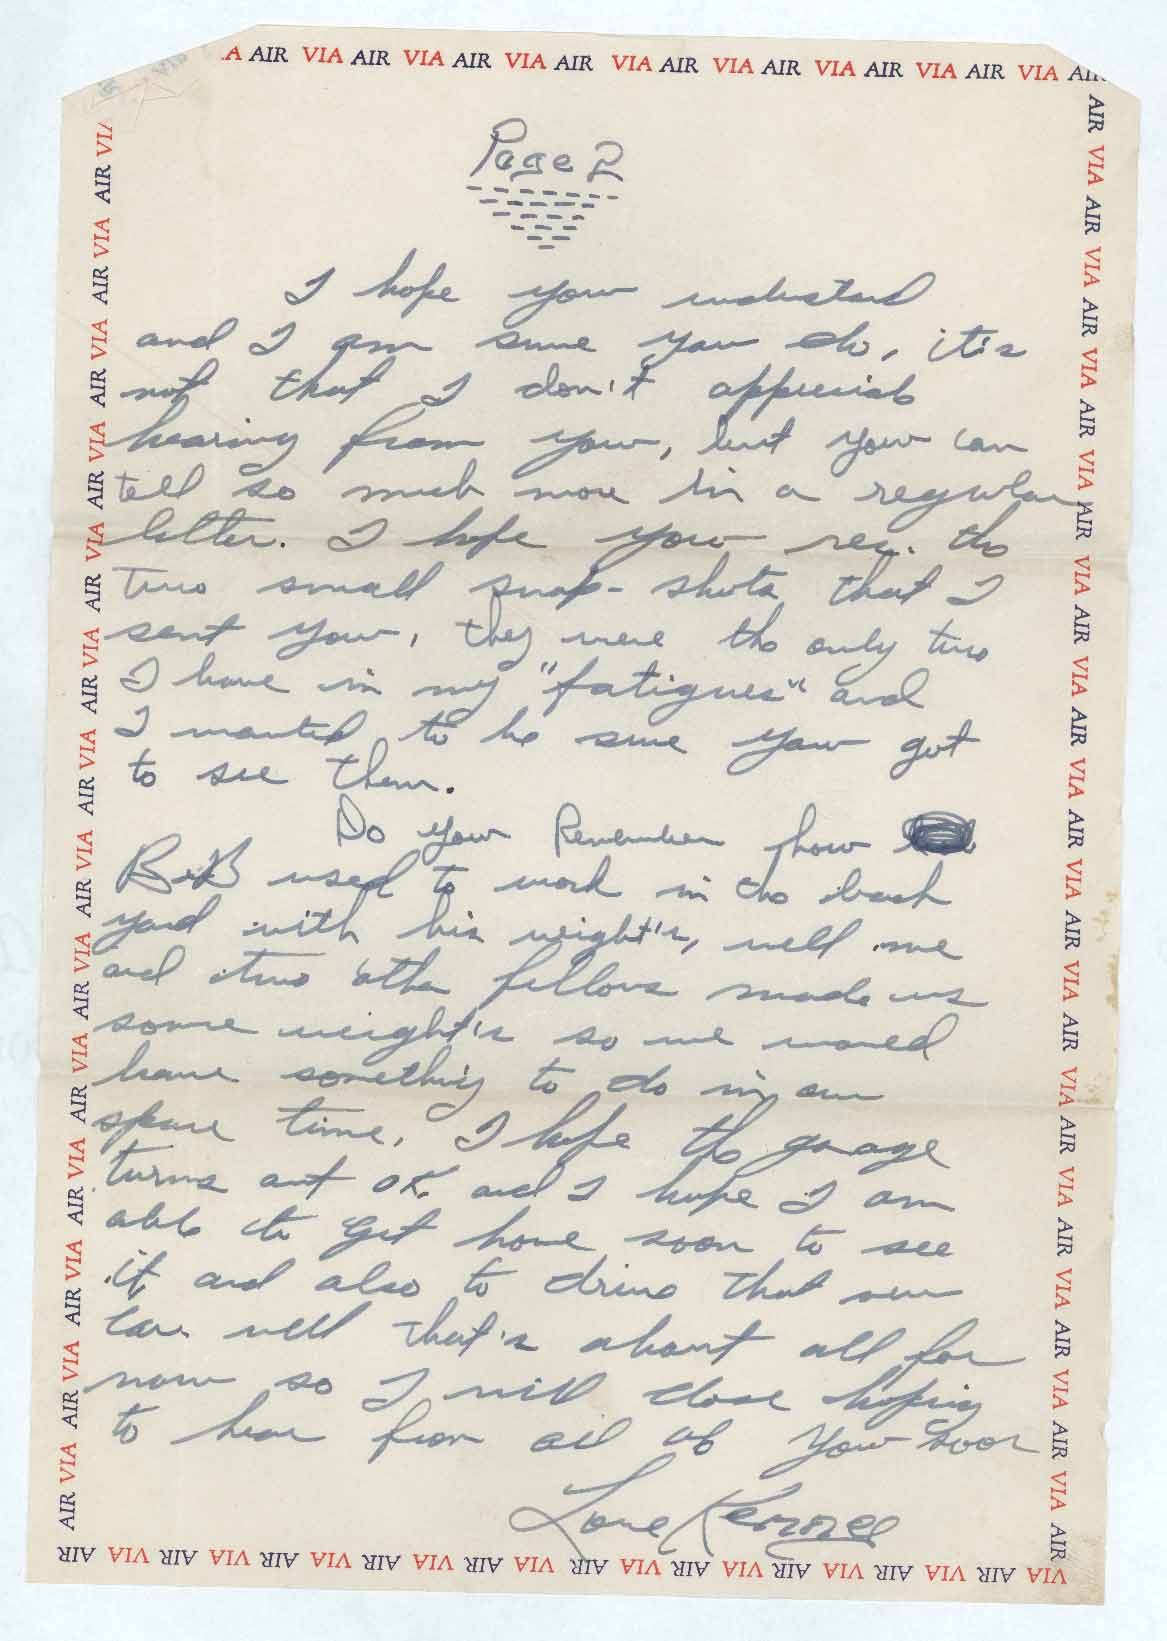 VIA AIR VIA AIR VIA AIR VIA AIR VIA AIR VIA AIR VIA AIR VIA AIR VIA AIR
Page 2
I hope you understand
and I am sure you do, it's
not that I don't appreciate
hearing from you, but you can
tell so much more in a regular
letter. I hope you rec. the
two small snap-shots that I
sent you, they were the only two
I have in my "fatigues" and
I wanted to be sure you got
to see them.
Do you Remember how
Bill used to work in the back
yard with his weight's, well me
and two other fellows made us
some weight's so we would
have something to do in our
spare time. I hope the garage
turns out OK. and I hope I am
able to get home soon to see
it, and also to drive that new
car. well that's about all for
now so I will close hoping
to hear from all of you soon
Love
AIR VIA AIR VIA AIR VIA AIR VIA AIR VIA AIR VIA AIR VIA AIR VIA AIR VIA AIR VIA